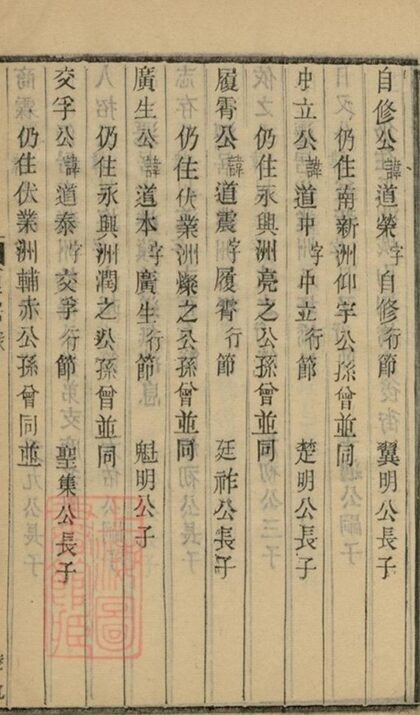 自修公諱道榮字自修行節 翼明公長子
仍住南新洲仰宇公孫曾並同
中立公諱道中字中立行節 楚明公長子
仍住永興洲亮之公孫曾並同
履霄公諱道震字履霄行節 廷祚公長子
仍住伏業洲燦之公孫曾並同
廣生公諱道本字廣生行節 魁明公子
仍住永興洲潤之公孫曾並同
交孚公諱道泰字交孚行節 聖集公長子
仍住伏業洲輔赤公孫曾同並